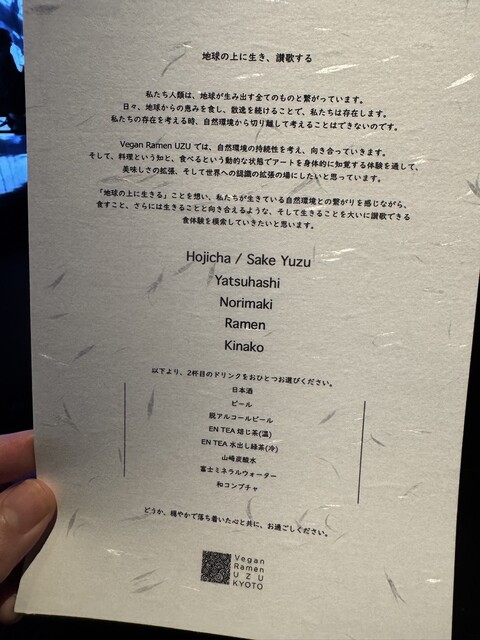 地球の上に生き、讃歌する
私たち人類は、地球が生み出す全てのものと繋がっています。
日々。地球からの恵みを食し、散逸を続けることで、私たちは存在します。
私たちの存在を考える時、自然環境から切り離して考えることはできないのです。
Vegan Ramen UZU では、自然環境の持続性を考え、向き合っていきます。
そして、料理という知と、食べるという動的な状態でアートを身体的に知覚する体験を通して、
美味しさの拡張、そして世界への認識の拡張の場にしたいと思っています。
「地球の上に生きる」ことを想い、私たちが生きている自然環境との繋がりを感じながら、
食すこと、さらには生きることと向き合えるような、そして生きることを大いに讃歌できる
食体験を模索していきたいと思います。
Hojicha / Sake Yuzu
Yatsuhashi
Norimaki
Ramen
Kinako
以下より、2杯目のドリンクをおひとつお選びください。
日本酒
ビール
脱アルコールビール
EN TEA 焙じ茶(温)
EN TEA 水出し緑茶(冷)
山崎炭酸水
富士ミネラルウォーター
和コンブチャ
どうか、穏やかで落ち着いた心と共に、お過ごしください。
Vegan
Ramen
UZU
KYOTO